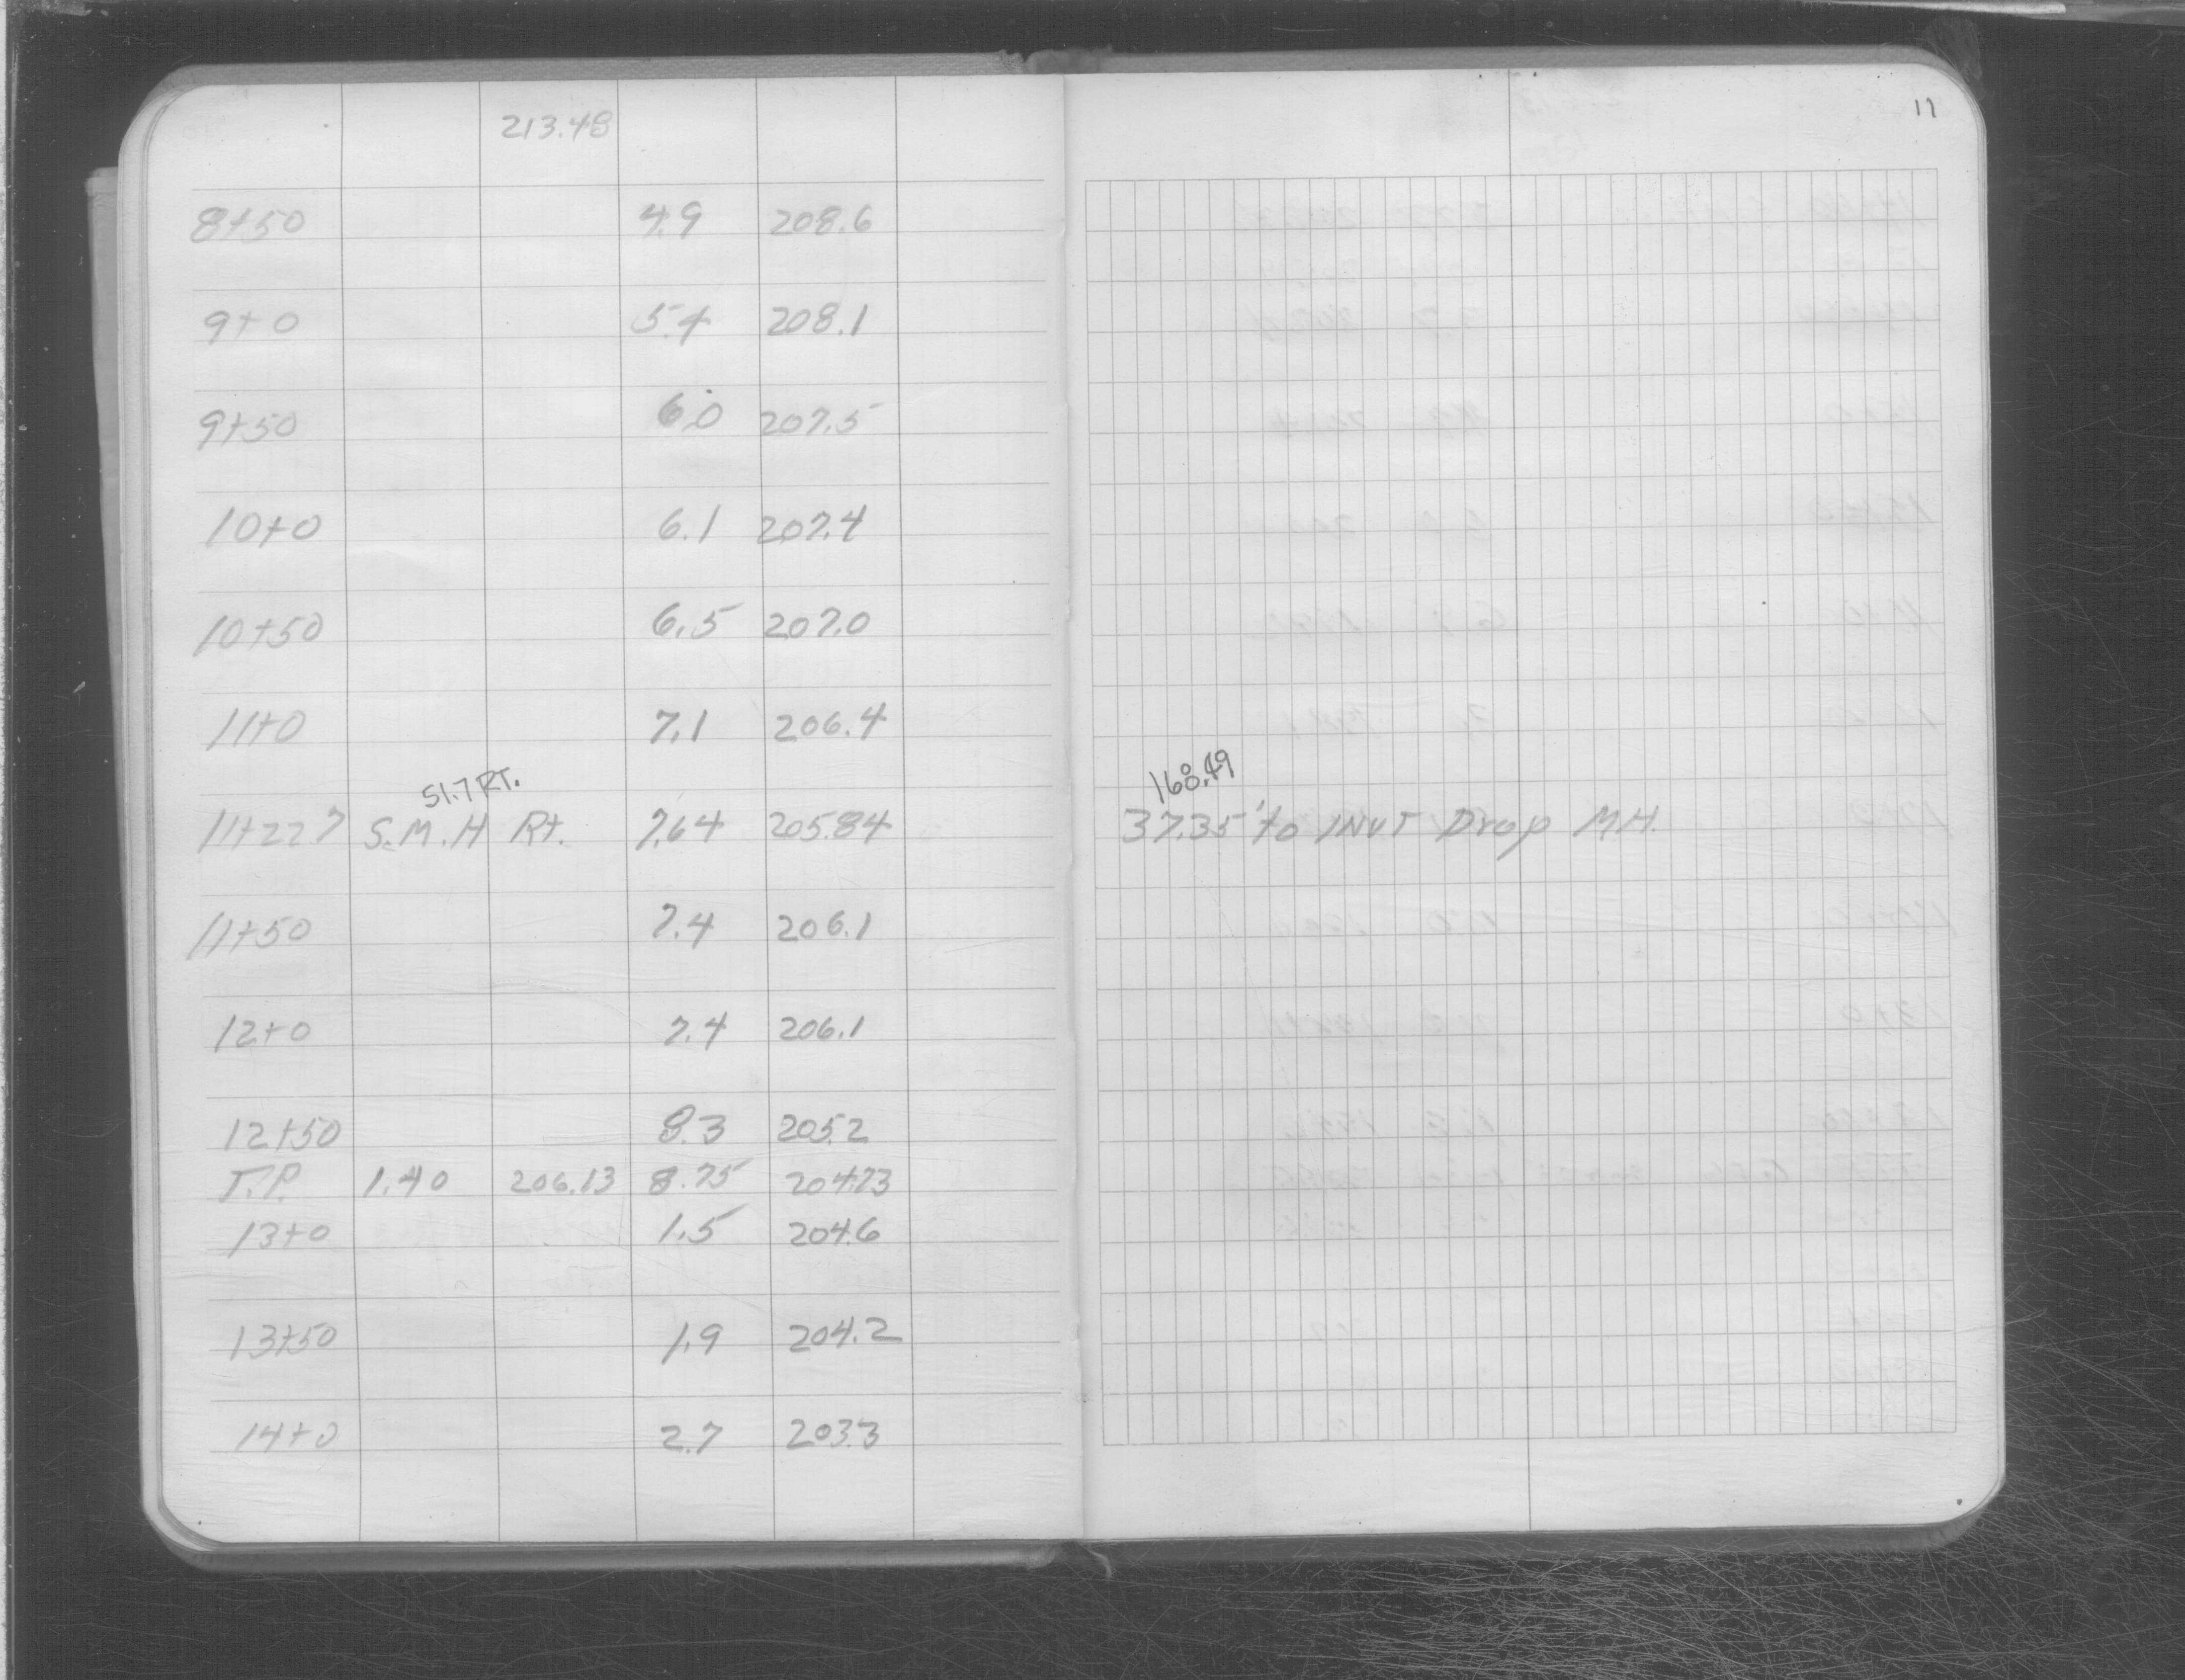 213.48
11
8+50 4.9 208.6
9+0 5.4 208.1
9+50 6.0 207.5
10+0 6.1 207.4
10+50 6.5 207.0
11+0 7.1 206.4
51.7 RT.
11+22.7 S.M.H Rt. 7.64 205.84 37.35' to INVT Drop M.H.
11+50 7.4 206.1
12+0 7.4 206.1
12+50 8.3 205.2
T.P. 1.40 206.13 8.75 204.73
13+0 1.5 204.6
13+50 1.9 204.2
14+0 2.7 203.3